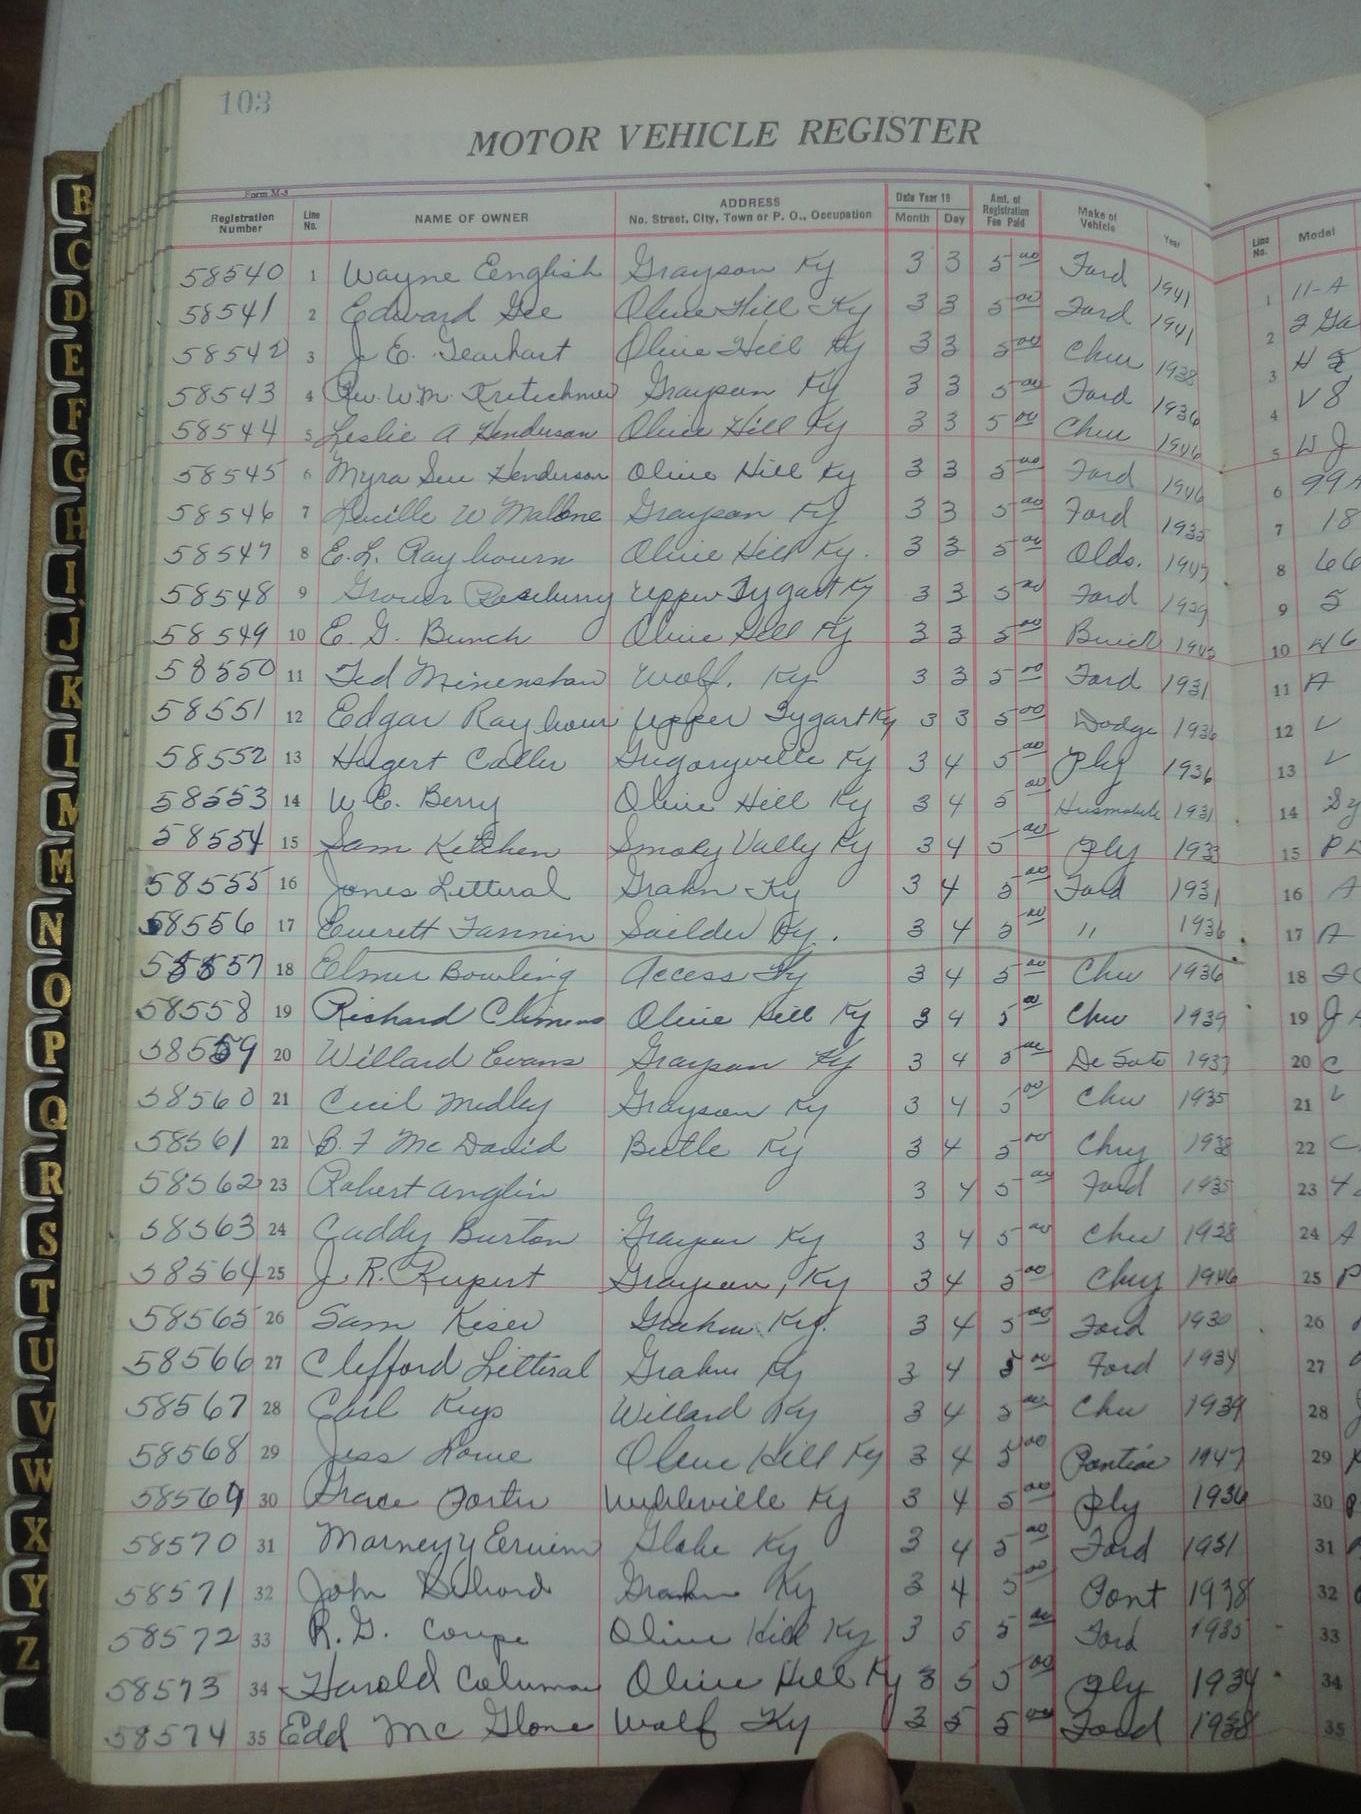 103
MOTOR VEHICLE REGISTER
Form M-8
Registration Number Line No. NAME OF OWNER ADDRESS No. Street, City, Town or P. O., Occupation Date Year 19 Month Day Amt. of Registration Fee Paid Make of Vehicle Year Line No. Model
58540 1 Wayne Eenglish Grayson Ky 3 3 5 00 Ford 1941 1 11-A
58541 2 Edward Gee Olive Hill Ky 3 3 5 00 Ford 1941 2 2 Ga
58542 3 J. E. Gearhart Olive Hill Ky 3 3 5 00 Chev 1938 3 H
58543 4 Rev. W.M. Kretschmer Grayson Ky 3 3 5 00 Ford 1936 4 V8
58544 5 Leslie A Henderson Olive Hill Ky 3 3 5 00 Chev 1946 5 DJ
58545 6 Myra Sue Henderson Olive Hill Ky 3 3 5 00 Ford 1946 6 99A
58546 7 Lucille W Malone Grayson Ky 3 3 5 00 Ford 1935 7 18
58547 8 E. L. Raybourn Olive Hill Ky. 3 3 5 00 Olds. 1947 8 66
58548 9 Grover Roseberry Upper Tygart Ky 3 3 5 00 Ford 1929 9 5
58549 10 E. G. Bunch Olive Hill Ky 3 3 5 00 Buick 10 46
58550 11 Ted Minenshaw Wolf. Ky 3 3 5 00 Ford 1931 11 A
58551 12 Edgar Raybour Upper Tygart Ky 3 3 5 00 Dodge 1936 12
58552 13 Hagert Caller Gregoryville Ky 3 4 5 00 Ply 1936 13
58553 14 W. E. Berry Olive Hill Ky 3 4 5 00 1931 14
58554 15 Sam Kitchen Smoky Vally Ky 3 4 5 00 Ply 1933 15 PD
58555 16 Jones Litteral Grahn Ky 3 4 5 00 Ford 1931 16 A
58556 17 Everett Fannin Ky. 3 4 5 00 " 1936 17 A
58557 18 Elmer Bowling Access Ky 3 4 5 00 Chev 1936 18
58558 19 Richard Clemens Olive Hill Ky 3 4 5 00 Chev 1939 19 JA
58559 20 Willard Evans Grayson Ky 3 4 5 00 De Soto 1937 20 C
58560 21 Cecil Medley Grayson Ky 3 4 5 00 Chev 1935 21
58561 22 B. F McDavid Beetle Ky 3 4 5 00 Chry 1938 22 C
58562 23 Robert Anglin 3 4 5 00 Ford 1935 23 4
58563 24 Caddy Burton Grayson Ky 3 4 5 00 Chev 1938 24 A
58564 25 J. R. Rupert Grayson, Ky 3 4 5 00 Chry 1946 25 P
58565 26 Sam Kiser Grahn Ky. 3 4 5 00 Ford 1930 26
58566 27 Clefford Litteral Grahn Ky 3 4 5 00 Ford 1934 27
58567 28 Carl Keys Willard Ky 3 4 5 00 Chev 1939 28
58568 29 Jess Rowe Olive Hill Ky 3 4 5 00 Pontiac 1947 29
58569 30 Grace Porter Webbville Ky 3 4 5 00 Ply 1936 30
58570 31 Globe Ky 3 4 5 00 Ford 1931 31
58571 32 John Grahn Ky 3 4 5 00 Pont 1938 32
58572 33 R. G. Coupe Olive Hill Ky 3 5 5 00 Ford 1935 33
58573 34 Harold Columna Olive Hill Ky 3 5 5 00 Ply 1934 34
58574 35 Edd McGlone Wolf Ky 3 5 5 00 Ford 1938 35
B
C
D
E
F
G
H
I
J
K
L
M
M
N
O
P
Q
R
S
T
U
V
W
X
Y
Z